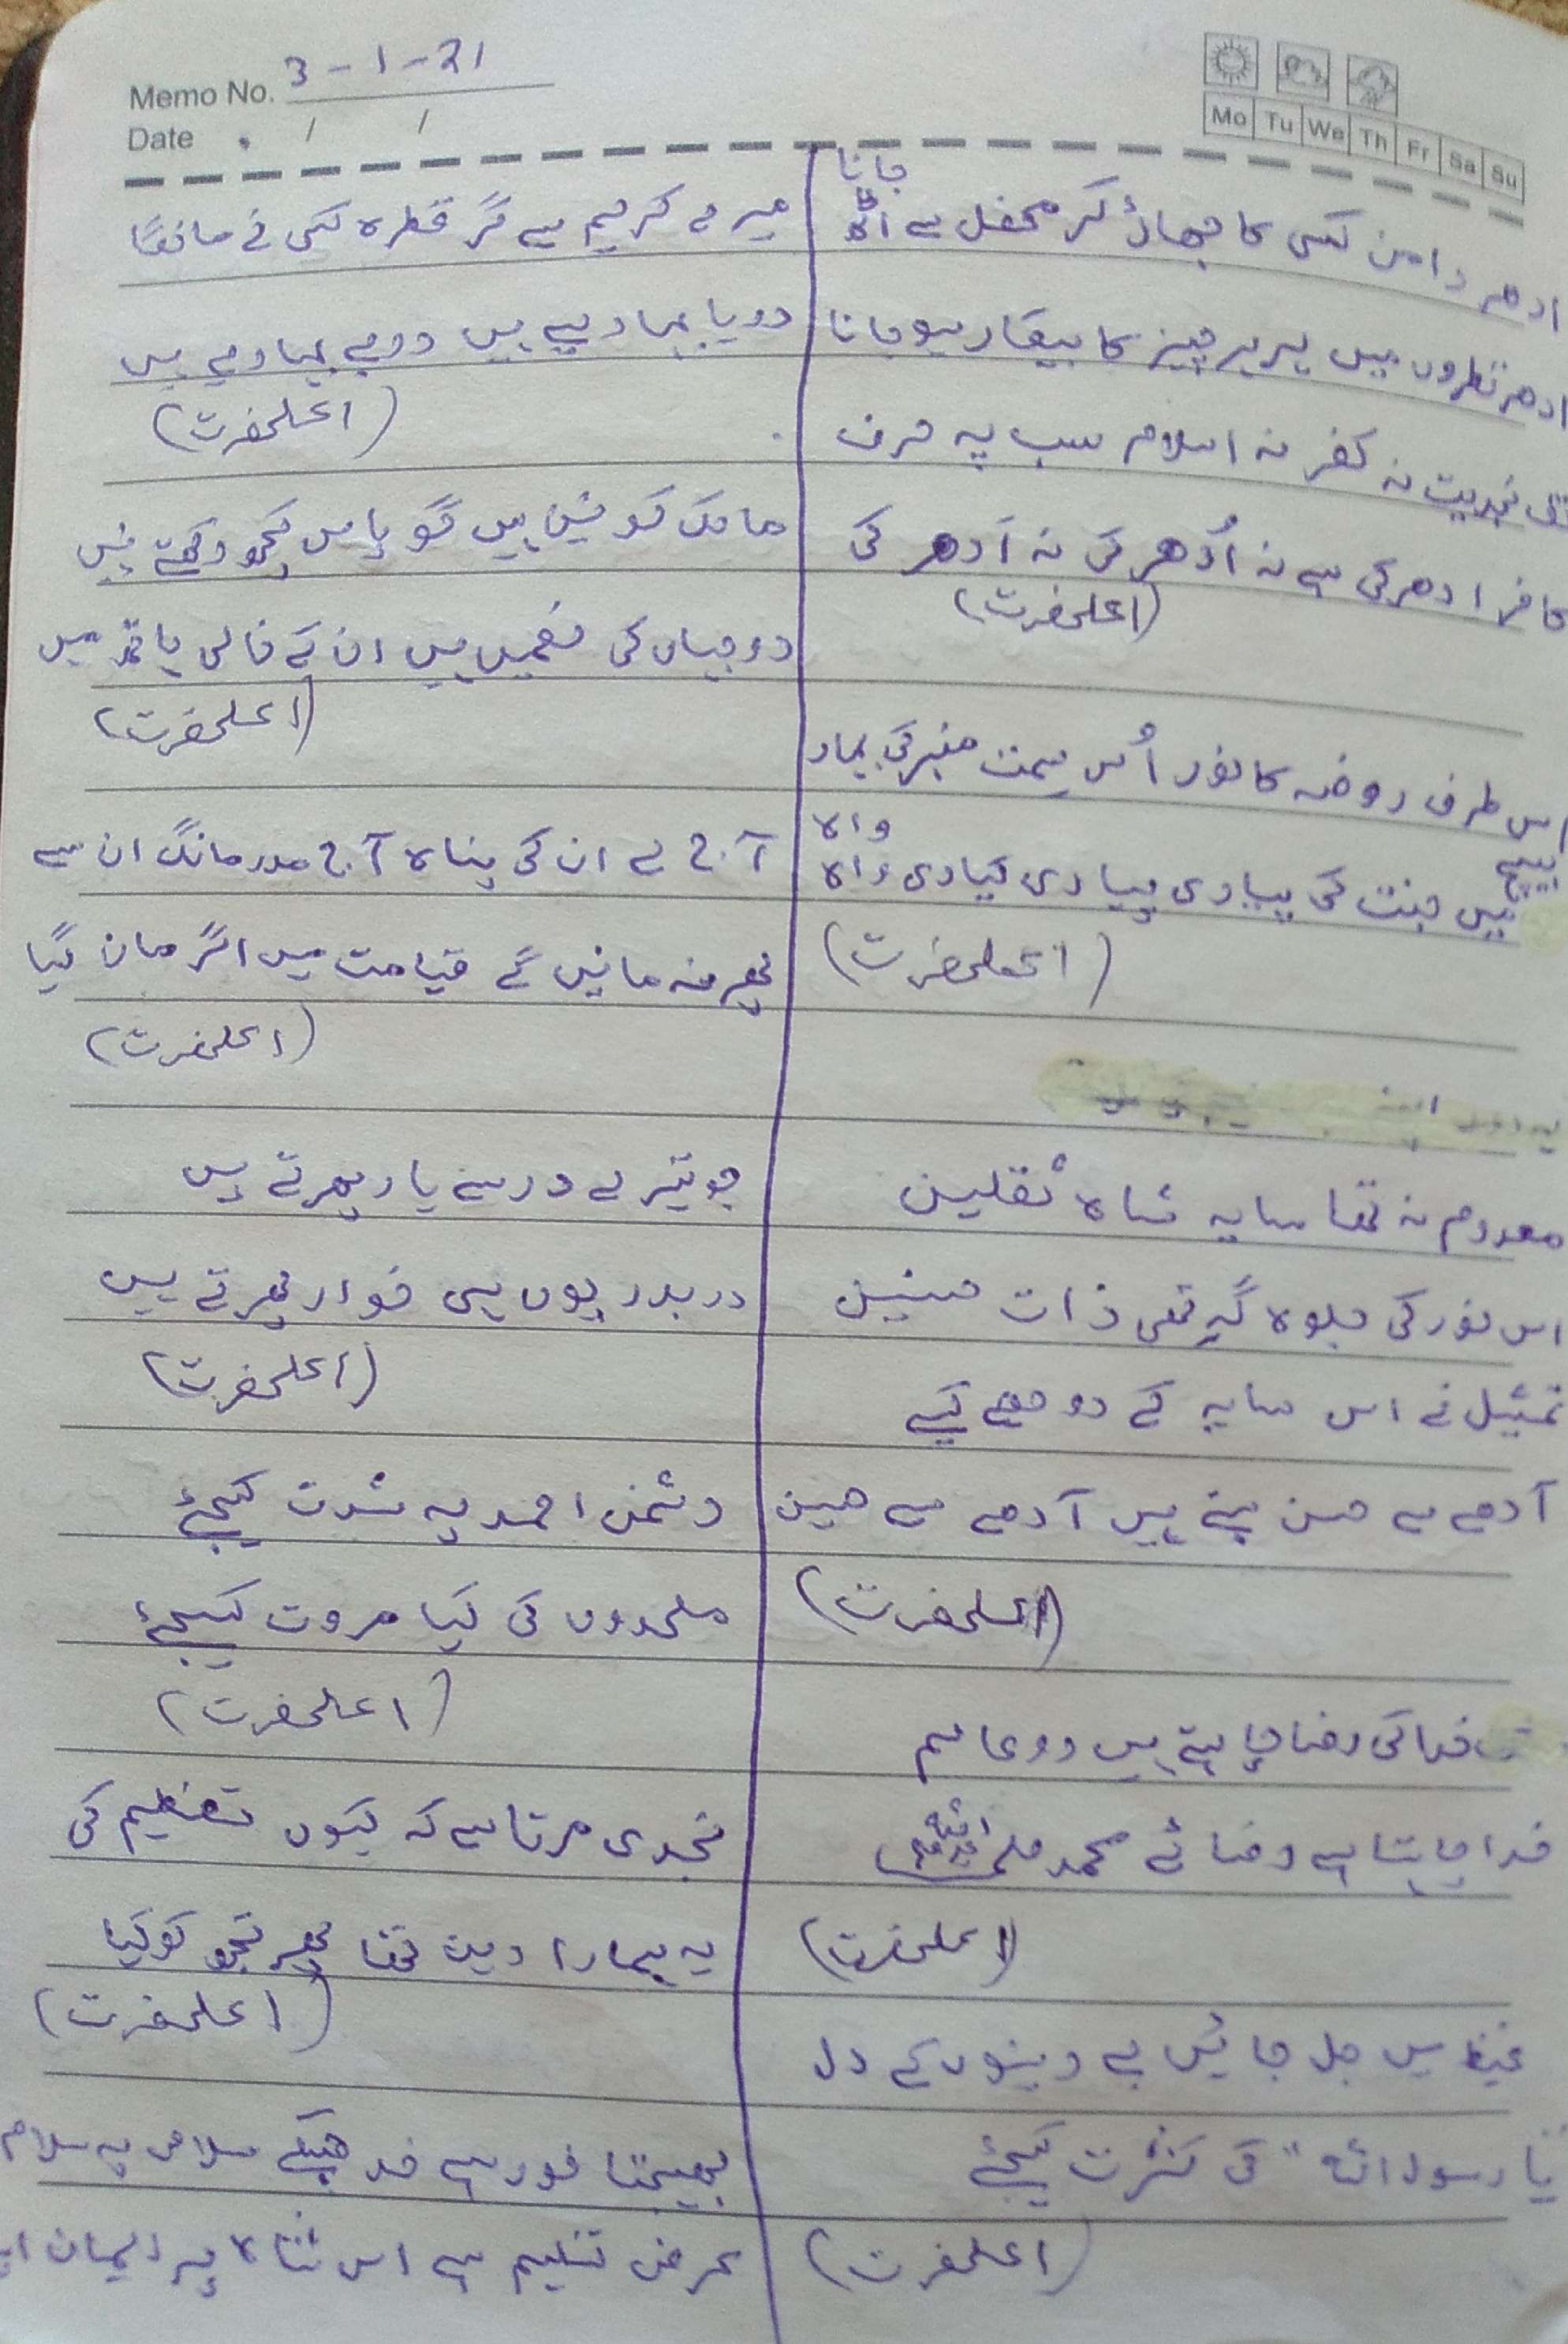 Memo No. 3-1-21
Date . / /
Mo Tu We Th Fr Sa Su
جانا
ادھر دامن کسی کا جھاڑ کر محفل سے
ادھر نظروں میں ہر ہر چیز کا بیقار ہو جانا
نجدیت نہ کفر نہ اسلام سب پہ حرف
کافر ادھر کی ہے نہ اُدھر کی نہ اَدھر کی
(اعلحضرت)
اس طرف روضہ کا نور اُس سمت منبر کی بہار
والا
بیچ
میں جنت کی پیاری پیاری کیاری والا
(اعلحضرت)
معدوم نہ تھا سایہ شاہ ثقلین
اس نور کی جلوہ گہ تھی ذات حسنین
تمثیل نے اس سایہ کے دو حصے کیے
آدھے سے حسن بنے ہیں آدھے سے حسین
(اعلحضرت)
خدا کی رضا چاہتے ہیں دو عالم
خدا چاہتا ہے رضائے محمد صلی اللہ
(اعلحضرت)
غیظ میں جل جائیں بے دینوں کے دل
"یا رسول اللہ" کی کثرت کیجئے
(اعلحضرت)
میرے کریم سے گر قطرہ کسی نے مانگا
دریا بہا دیے ہیں دربے بہا دیے ہیں
(اعلحضرت)
مالک کونین ہیں گو پاس کچھ رکھتے نہیں
دو جہاں کی نعمتیں ہیں ان کے خالی ہاتھ میں
(اعلحضرت)
آج لے ان کی پناہ آج مدد مانگ ان سے
پھر نہ مانیں گے قیامت میں اگر مان گیا
(اعلحضرت)
جو تیرے در سے یار پھرتے ہیں
در بدر یوں ہی خوار پھرتے ہیں
(اعلحضرت)
دشمن احمد پہ شدت کیجئے
ملحدوں کی کیا مروت کیجئے
(اعلحضرت)
نجدی مرتا ہے کہ کیوں تعظیم کی
یہ ہمارا دین تھا پھر تجھ کو کیا
(اعلحضرت)
بھیجتا خود ہے خدا سلامی پہ سلام
عرض تسلیم ہے اس شاہ پہ ایمان